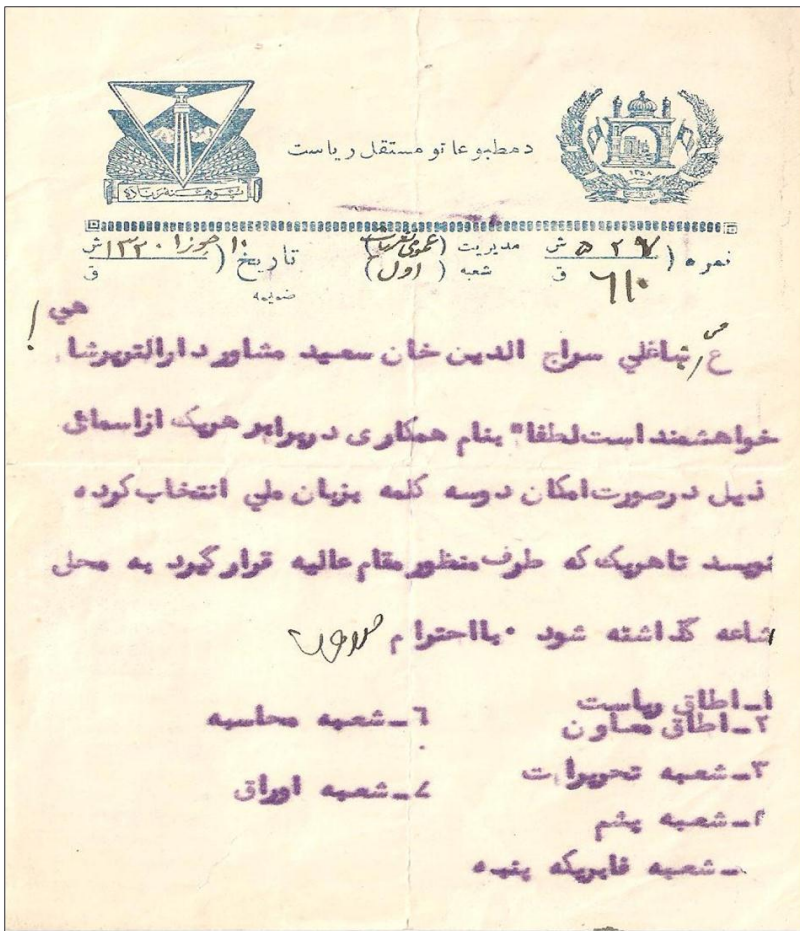 د مطبوعاتو مستقل ریاست
۱۳۴۸
نمره ( ۵۲۷ ش
۶۱۰ ق
مدیریت (عمومی
شعبه ( اول )
تاریخ ( ۱۰ جوزا ۱۳۲۰ ش
ق
ضمیمه
هی
ع ، ښاغلي سراج الدین خان سعید مشاور دارالتر !
خواهشمند است لطفا" بنام همکاری در برابر هریک از اسمائ
ذیل در صورت امکان دوسه کلمه بزبان ملي انتخاب کرده
نویسد تا هریک که طرف منظور مقام عالیه قرار گیرد به محل
شاعه گذاشته شود ۰ با احترام
۱ــ اطاق ریاست
۲ــ اطاق معاون
۳ــ شعبه تحریرات
ــ شعبه پشم
ــ شعبه فابریکه پنبه
۶ــ شعبه محاسبه
۷ــ شعبه اوراق